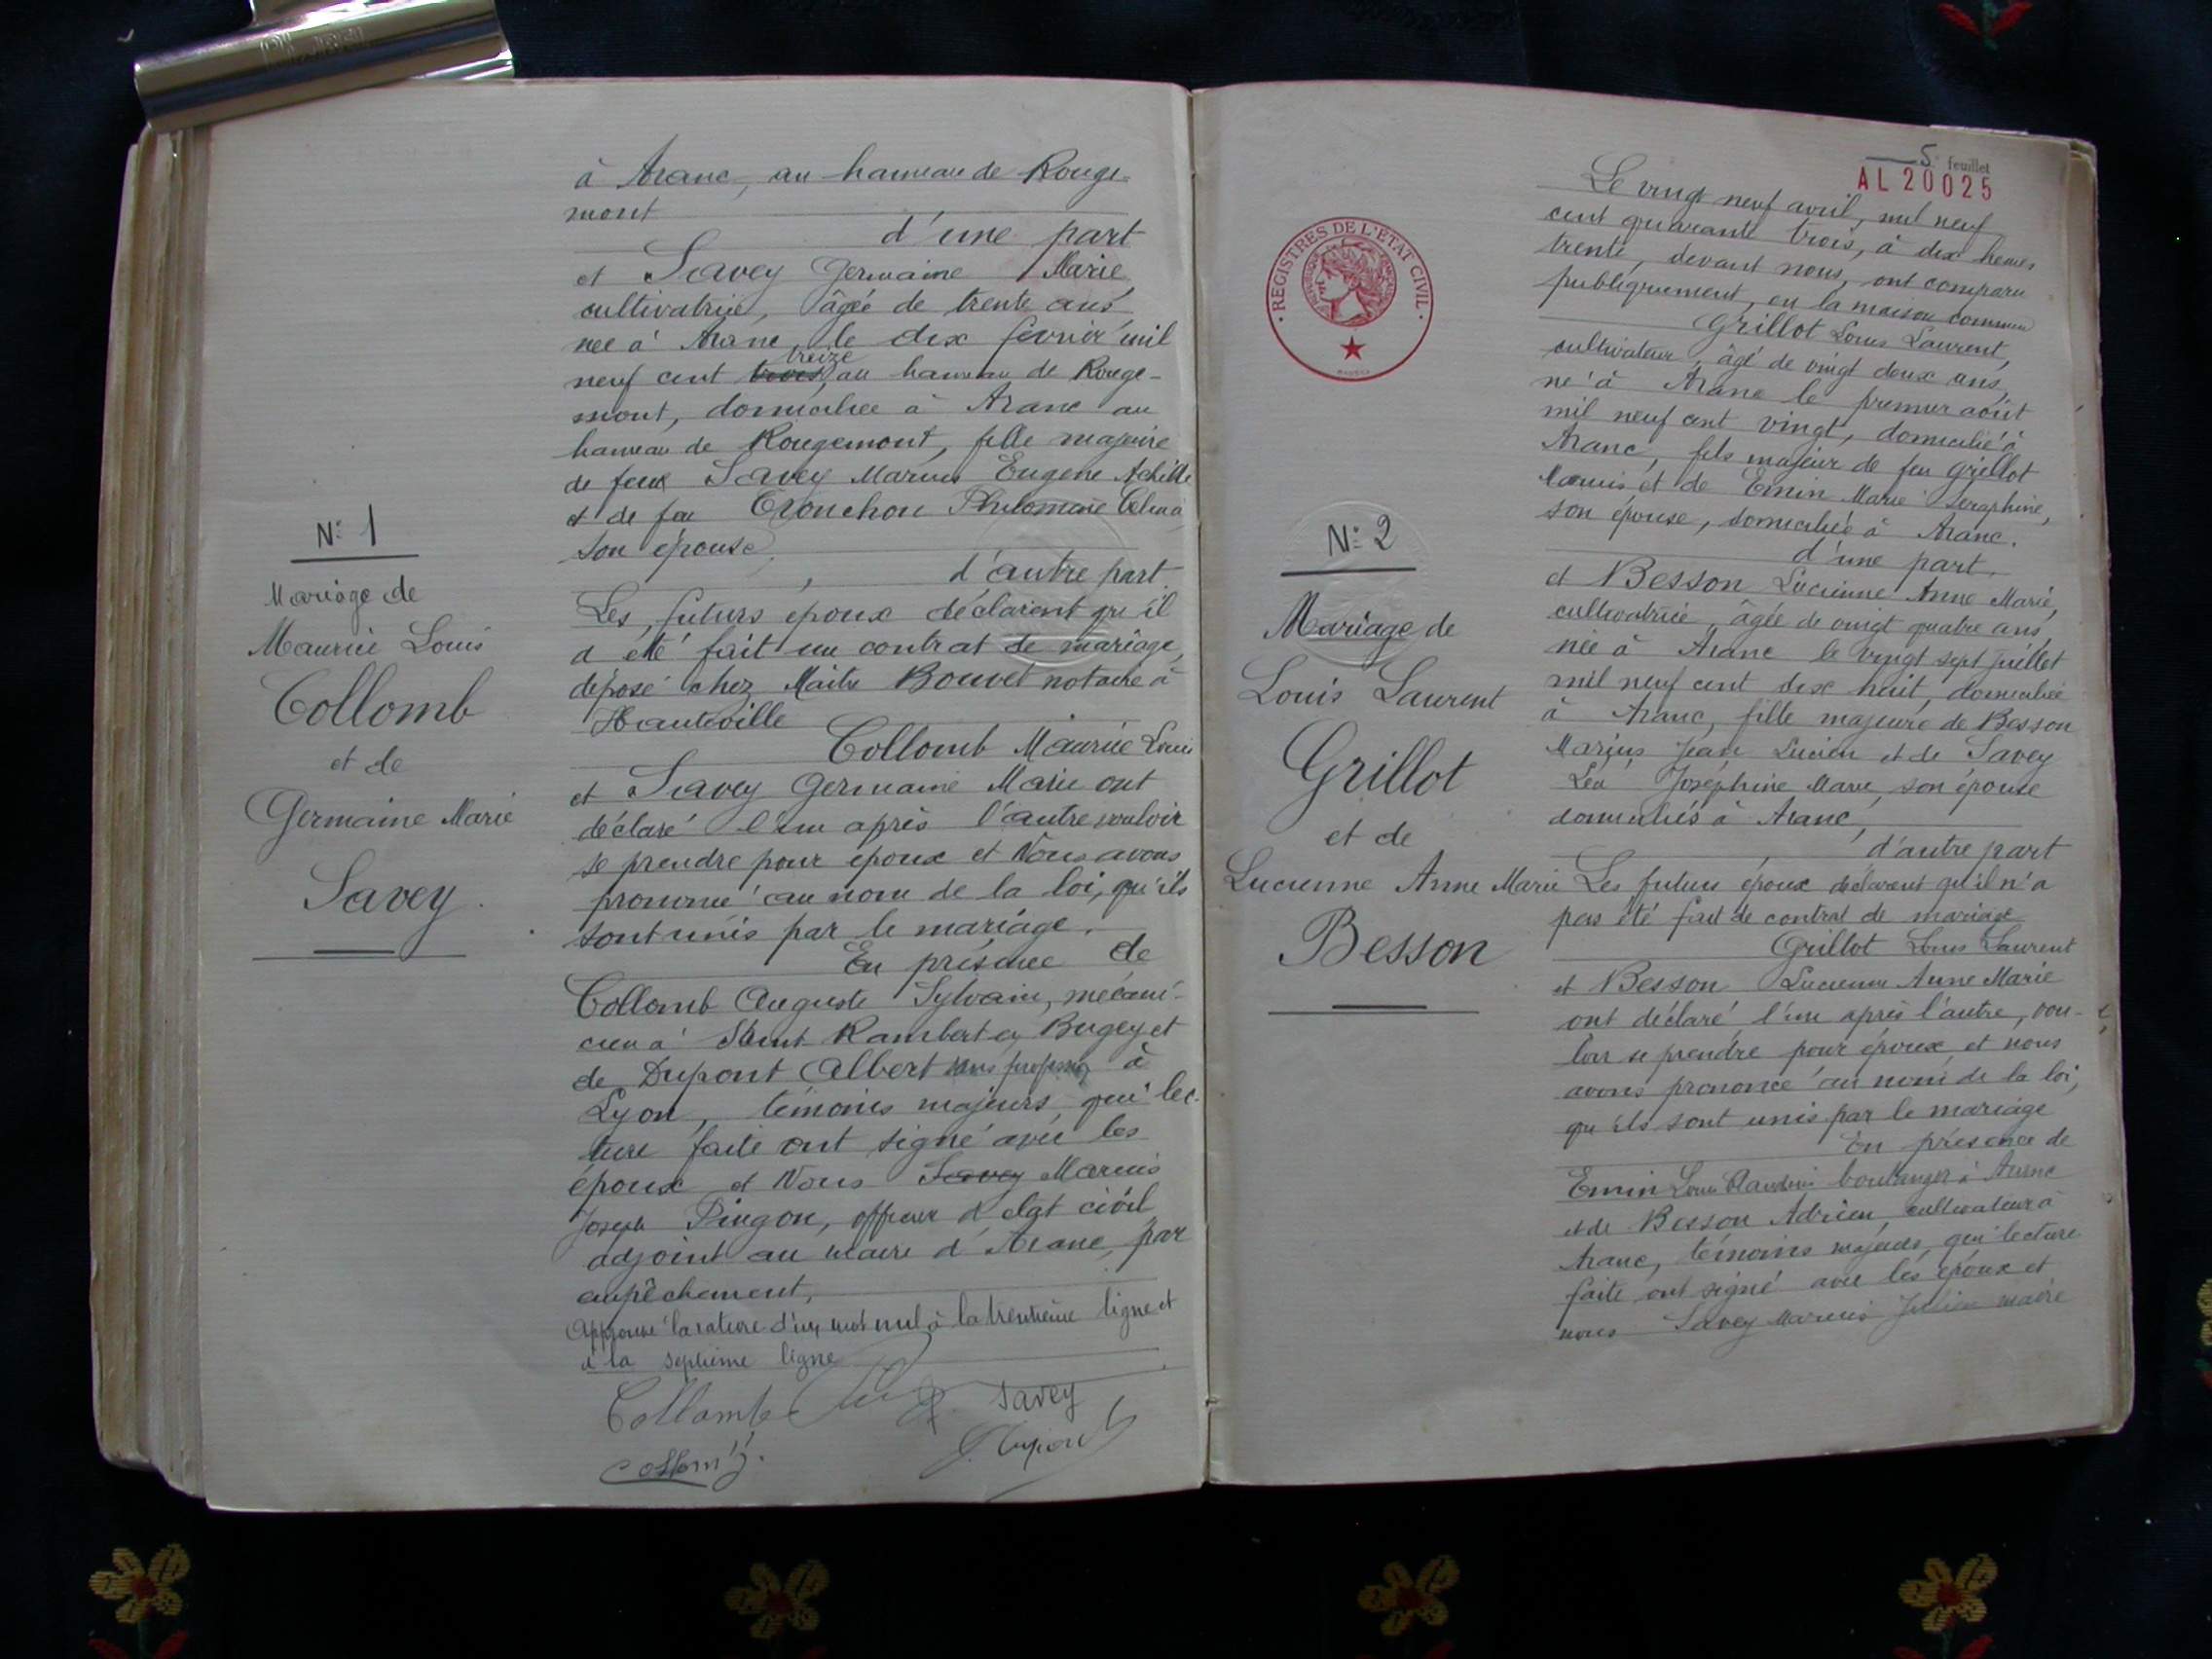 à Aranc, au hameau de Rouge-
mont
d'une part
et Savey Germaine Marie
cultivatrice, âgée de trente ans,
née à Aranc, le dix février mil
treize
neuf cent trois, au hameau de Rouge-
mont, domiciliée à Aranc au
hameau de Rougemont, fille majeure
de feux Savey Marius Eugène Achille
et de feu Tronchon Philomène Célina
son épouse,
d'autre part
Les futurs époux déclarent qu'il
a été fait un contrat de mariage,
déposé chez Maître Bouvet notaire à
Hauteville
Collomb Maurice Louis
et Savey Germaine Marie ont
déclaré l'un après l'autre vouloir
se prendre pour époux et Nous avons
prononcé au nom de la loi, qu'ils
sont unis par le mariage.
En présence de
Collomb Auguste Sylvain, mécani-
cien à Saint Rambert en Bugey et
de Dupont Albert sans profession à
Lyon, témoins majeurs, qui lec-
ture faite ont signé avec les
époux et Nous Savey Marius
Joseph Pingon, officier d'état civil
adjoint au maire d'Aranc, par
empêchement,
Approuvé la rature d'un mot nul à la trentième ligne et
à la septième ligne
Collomb
Savey
Collomb
Dupont
N° 1
Mariage de
Maurice Louis
Collomb
et de
Germaine Marie
Savey.
5e feuillet
AL 20025
REGISTRES DE L'ÉTAT CIVIL
N° 2
Mariage de
Louis Laurent
Grillot
et de
Lucienne Anne Marie
Besson
Le vingt neuf avril, mil neuf
cent quarante trois, à dix heures
trente, devant nous, ont comparu
publiquement, en la maison commune
Grillot Louis Laurent,
cultivateur, âgé de vingt deux ans,
né à Aranc le premier août
mil neuf cent vingt, domicilié à
Aranc, fils majeur de feu Grillot
Louis et de Emin Marie Séraphine,
son épouse, domiciliée à Aranc.
d'une part,
et Besson Lucienne Anne Marie,
cultivatrice, âgée de vingt quatre ans,
née à Aranc le vingt sept juillet
mil neuf cent dix huit, domiciliée
à Aranc, fille majeure de Besson
Marius Jean Lucien et de Savey
Léa Joséphine Marie, son épouse
domiciliés à Aranc,
d'autre part
Les futurs époux déclarent qu'il n'a
pas été fait de contrat de mariage
Grillot Louis Laurent
et Besson Lucienne Anne Marie
ont déclaré l'un après l'autre, vou-
loir se prendre pour époux et nous
avons prononcé au nom de la loi,
qu'ils sont unis par le mariage
En présence de
Emin Louis Claudius boulanger à Aranc
et de Besson Adrien, cultivateur à
Aranc, témoins majeurs, qui lecture
faite ont signé avec les époux et
nous Savey Marius Julien maire